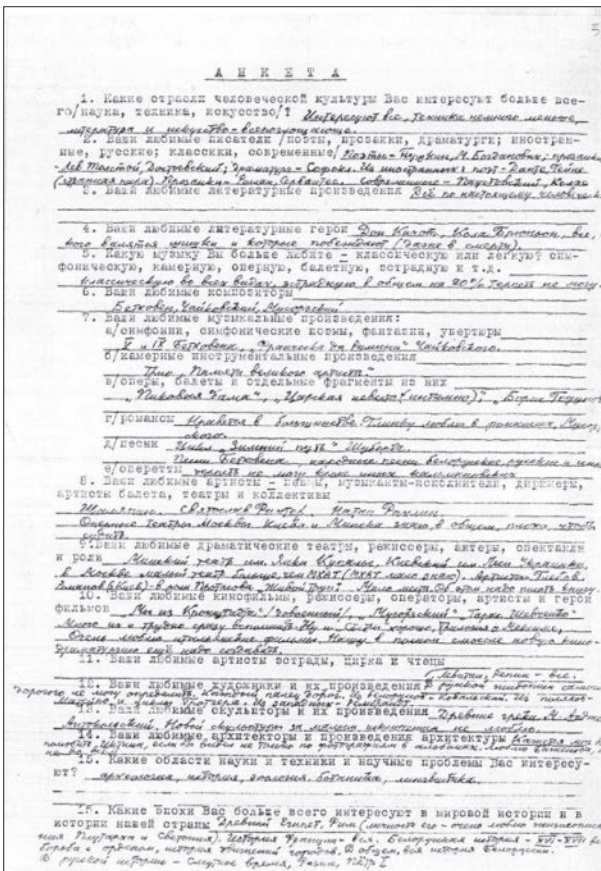 А Н К Е Т А
1. Какие отрасли человеческой культуры Вас интересуют больше все-
го/наука, техника, искусство/? Интересует все, техника немного меньше,
литература и искусство – всепоглощающе.
2. Ваши любимые писатели /поэты, прозаики, драматурги; иностран-
ные, русские; классики, современные/ Поэты – Пушкин, М. Богданович; прозаики
- Лев Толстой, Достоевский; драматург – Софокл. Из иностранных: поэт – Данте, Гейне
(странная пара). Прозаики – Ролан, Сервантес. Современные – Паустовский, Колас
3. Ваши любимые литературные произведения Всё по настоящему человече
4. Ваши любимые литературные герои Дон Кихот, Кола Брюньон, все, на
кого валятся шишки и которые побеждают (даже в смерти).
5. Какую музыку Вы больше любите – классическую или легкую? сим-
фоническую, камерную, оперную, балетную, эстрадную и т.д.
Классическую во всех видах, эстрадную в общем на 90% терпеть не могу.
6. Ваши любимые композиторы
Бетховен, Чайковский, Мусоргский
7. Ваши любимые музыкальные произведения:
а/симфонии, симфонические поэмы, фантазии, увертюры
V и IX Бетховена, "Франческа да Римини" Чайковского.
б/камерные инструментальные произведения
Трио "Памяти великого артиста"
в/оперы, балеты и отдельные фрагменты из них
"Пиковая дама", "Царская невеста" (интимно), "Борис Годунов"
г/романсы Нравятся в большинстве. Глинку люблю в романсах, Мусорг
ского.
д/песни Цикл "Зимний путь" Шуберта.
Песни Бетховена, народные песни белорусские, русские и
е/оперетты терпеть не могу кроме
8. Ваши любимые артисты – певцы, музыканты-исполнители, дирижеры,
артисты балета, театры и коллективы
Шаляпин. Святослав Рихтер. Натан Рахлин.
Оперные театры Москвы, Киева и Минска знаю, в общем, плохо, чтобы
судить.
9. Ваши любимые драматические театры, режиссеры, актеры, спектакли
и роли Минский театр им. Янки Купалы, Киевский им. Леси Украинки,
в Москве малый театр больше чем МХАТ (МХАТ мало знаю). Артисты Глебов,
(Киев) – в роли Протасова "Живой труп". Мало места. Об этом надо писать книгу.
10. Ваши любимые кинофильмы, режиссеры, операторы, артисты и герои
фильмов "Мы из Кронштадта" /довоенный/, "Мусоргский", "Тарас Шевченко"
Много их и трудно сразу вспомнить.
Очень люблю фильмы. Нашу в полном смысле новую кино-
драматургию ещё надо создавать.
11. Ваши любимые артисты эстрады, цирка и чтецы
Левитан, Репин – все.
12. Ваши любимые художники и их произведения В русской живописи самого
дорогого не могу определить. Каждый палец дорог. Из белорусов – Ковальский. Из поляков –
Матейко и циклы Гроттгера. Из западных – Рембрандт.
13. Ваши любимые скульпторы и их произведения Древние греки, М. Андж
Антокольский, Новой скульптуры за малыми исключениями не люблю.
14. Ваши любимые архитекторы и произведения архитектуры Кажется мог бы
полюбить Щусева, если бы видел не только по фотографиям в альбомах. Люблю Баженова,
но не все.
15. Какие области науки и техники и научные проблемы Вас интересу-
ют? археология, история, зоология, ботаника, лингвистика.
15. Какие эпохи Вас больше всего интересуют в мировой истории и в
истории нашей страны Древний Египет, Рим (личности его – очень люблю
Плутарха и Светония). История Франции – вся. Белорусская история – XVI–XVII век
борьба с орденом, история городов. В общем, вся история Белоруссии.
В русской истории – Смутное время, Разин, Пётр I